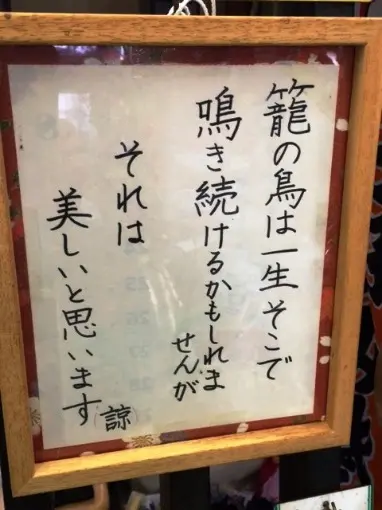 籠の鳥は一生そこで
鳴き続けるかもしれま
せんが
それは
美しいと思います
諒